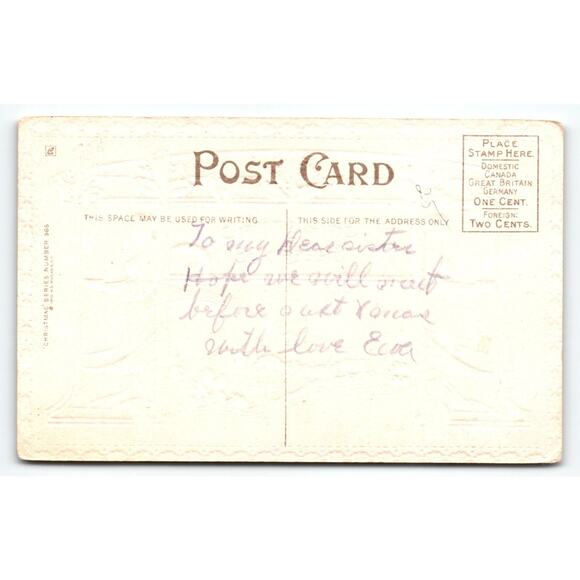 POST CARD
PLACE
STAMP HERE.
DOMESTIC
CANADA
GREAT BRITAIN
GERMANY
ONE CENT.
FOREIGN:
TWO CENTS.
THIS SPACE MAY BE USED FOR WRITING.
THIS SIDE FOR THE ADDRESS ONLY
To my Dear sister
Hope we will meet
before next Xmas
with love Eva
"CHRISTMAS" SERIES NUMBER
25